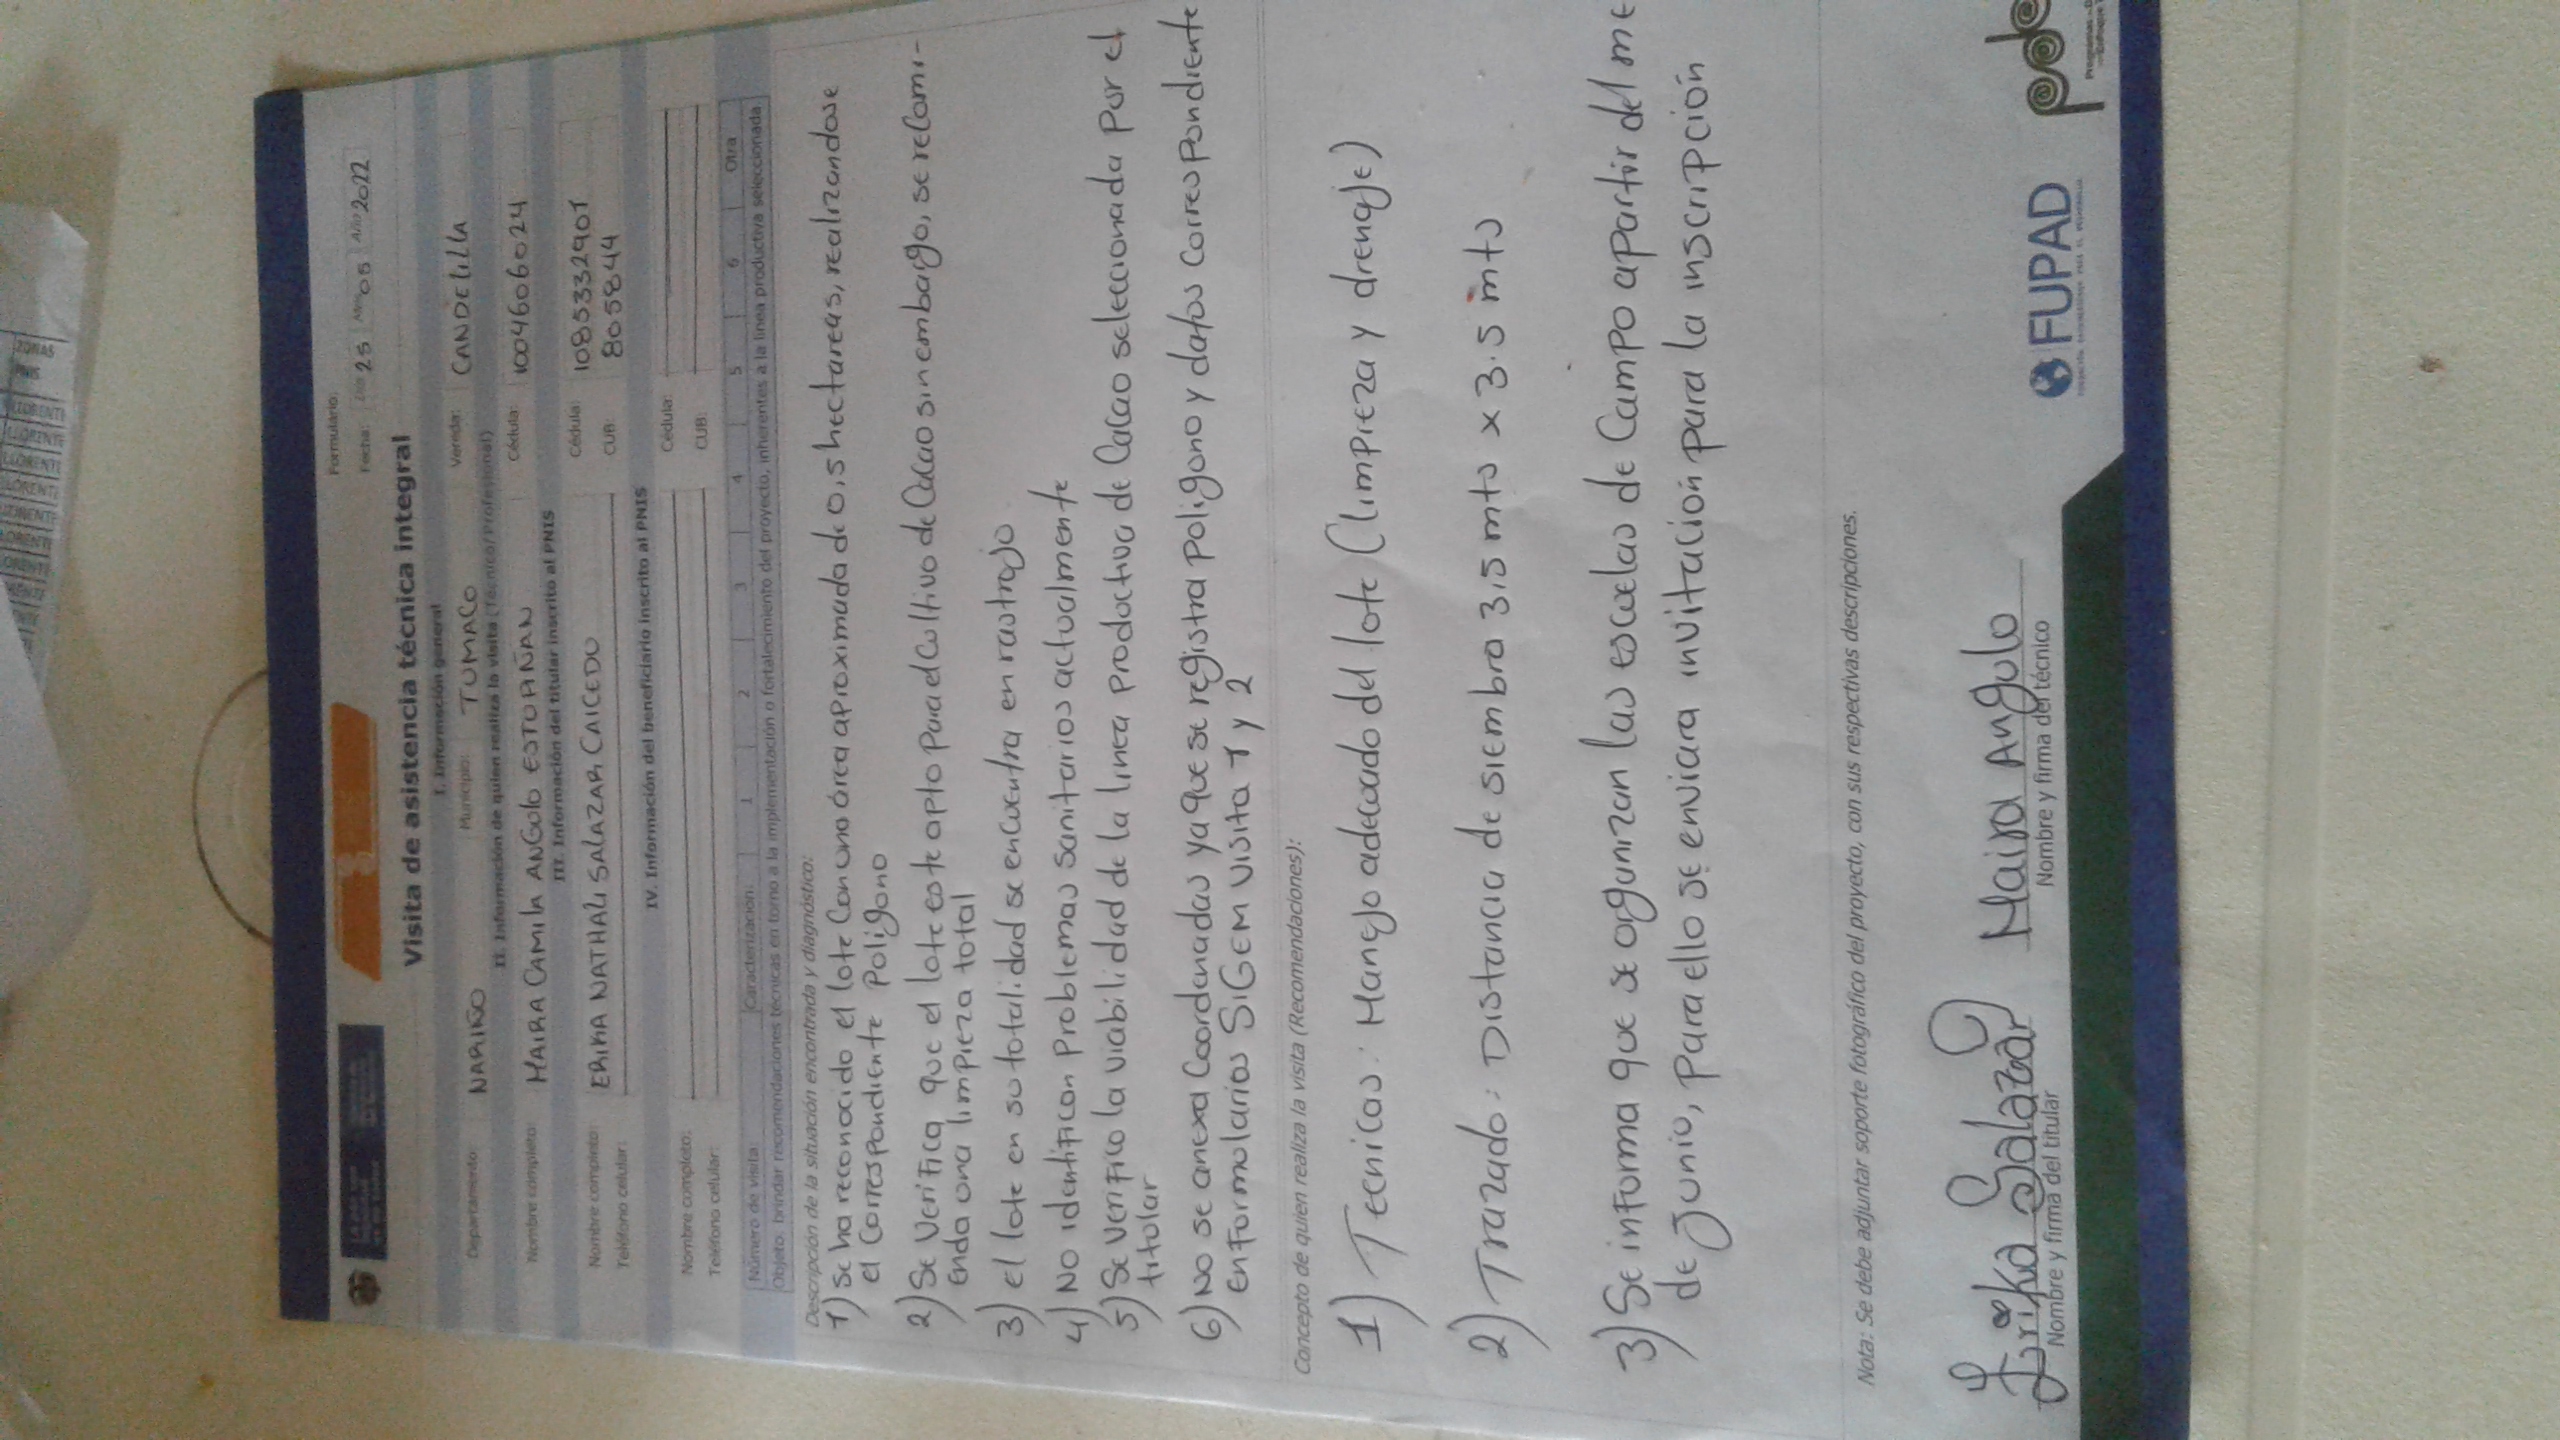 Formulario:
Fecha: Día 25 Mes 05 Año 2022
Visita de asistencia técnica integral
I. Información general
Departamento: NARIÑO Municipio: TUMACO Vereda: CANDELILLA
II. Información de quien realiza la visita (Técnico/Profesional)
Nombre completo: MAIRA CAMILA ANGULO ESTUPIÑAN Cédula: 1004606024
III. Información del titular inscrito al PNIS
Nombre completo: ERIKA NATHALI SALAZAR CAICEDO Cédula: 1085332901
Teléfono celular: CUB: 805844
IV. Información del beneficiario inscrito al PNIS
Nombre completo: Cédula:
Teléfono celular: CUB:
Número de visita: Caracterización: 1 2 3 4 5 6 Otra
Objeto: brindar recomendaciones técnicas en torno a la implementación o fortalecimiento del proyecto, inherentes a la línea productiva seleccionada
Descripción de la situación encontrada y diagnóstico:
1) Se ha reconocido el lote con una área aproximada de 0,5 hectareas, realizandose
el correspondiente Poligono
2) Se Verifica que el lote este apto para el cultivo de Cacao sin embargo, se recomi-
enda una limpieza total
3) el lote en su totalidad se encuentra en rastrojo
4) No identifican Problemas sanitarios actualmente
5) Se verifico la viabilidad de la linea productiva de Cacao seleccionada Por el
titular
6) No se anexa Coordenadas ya que se registra poligono y datos correspondiente
en formularios SIGEM visita 1 y 2
Concepto de quien realiza la visita (Recomendaciones):
1) Tecnicas: Manejo adecuado del lote (limpieza y drenaje)
2) Trazado: Distancia de siembra 3,5 mts x 3.5 mts
3) Se informa que se organizan las escuelas de Campo apartir del me
de junio, para ello se enviara invitación para la inscripción
Nota: Se debe adjuntar soporte fotográfico del proyecto, con sus respectivas descripciones.
Erika Salazar Maira Angulo
Nombre y firma del titular Nombre y firma del técnico
FUPAD
ZONAS
PNIS
LLORENTE
LLORENTE
LLORENTE